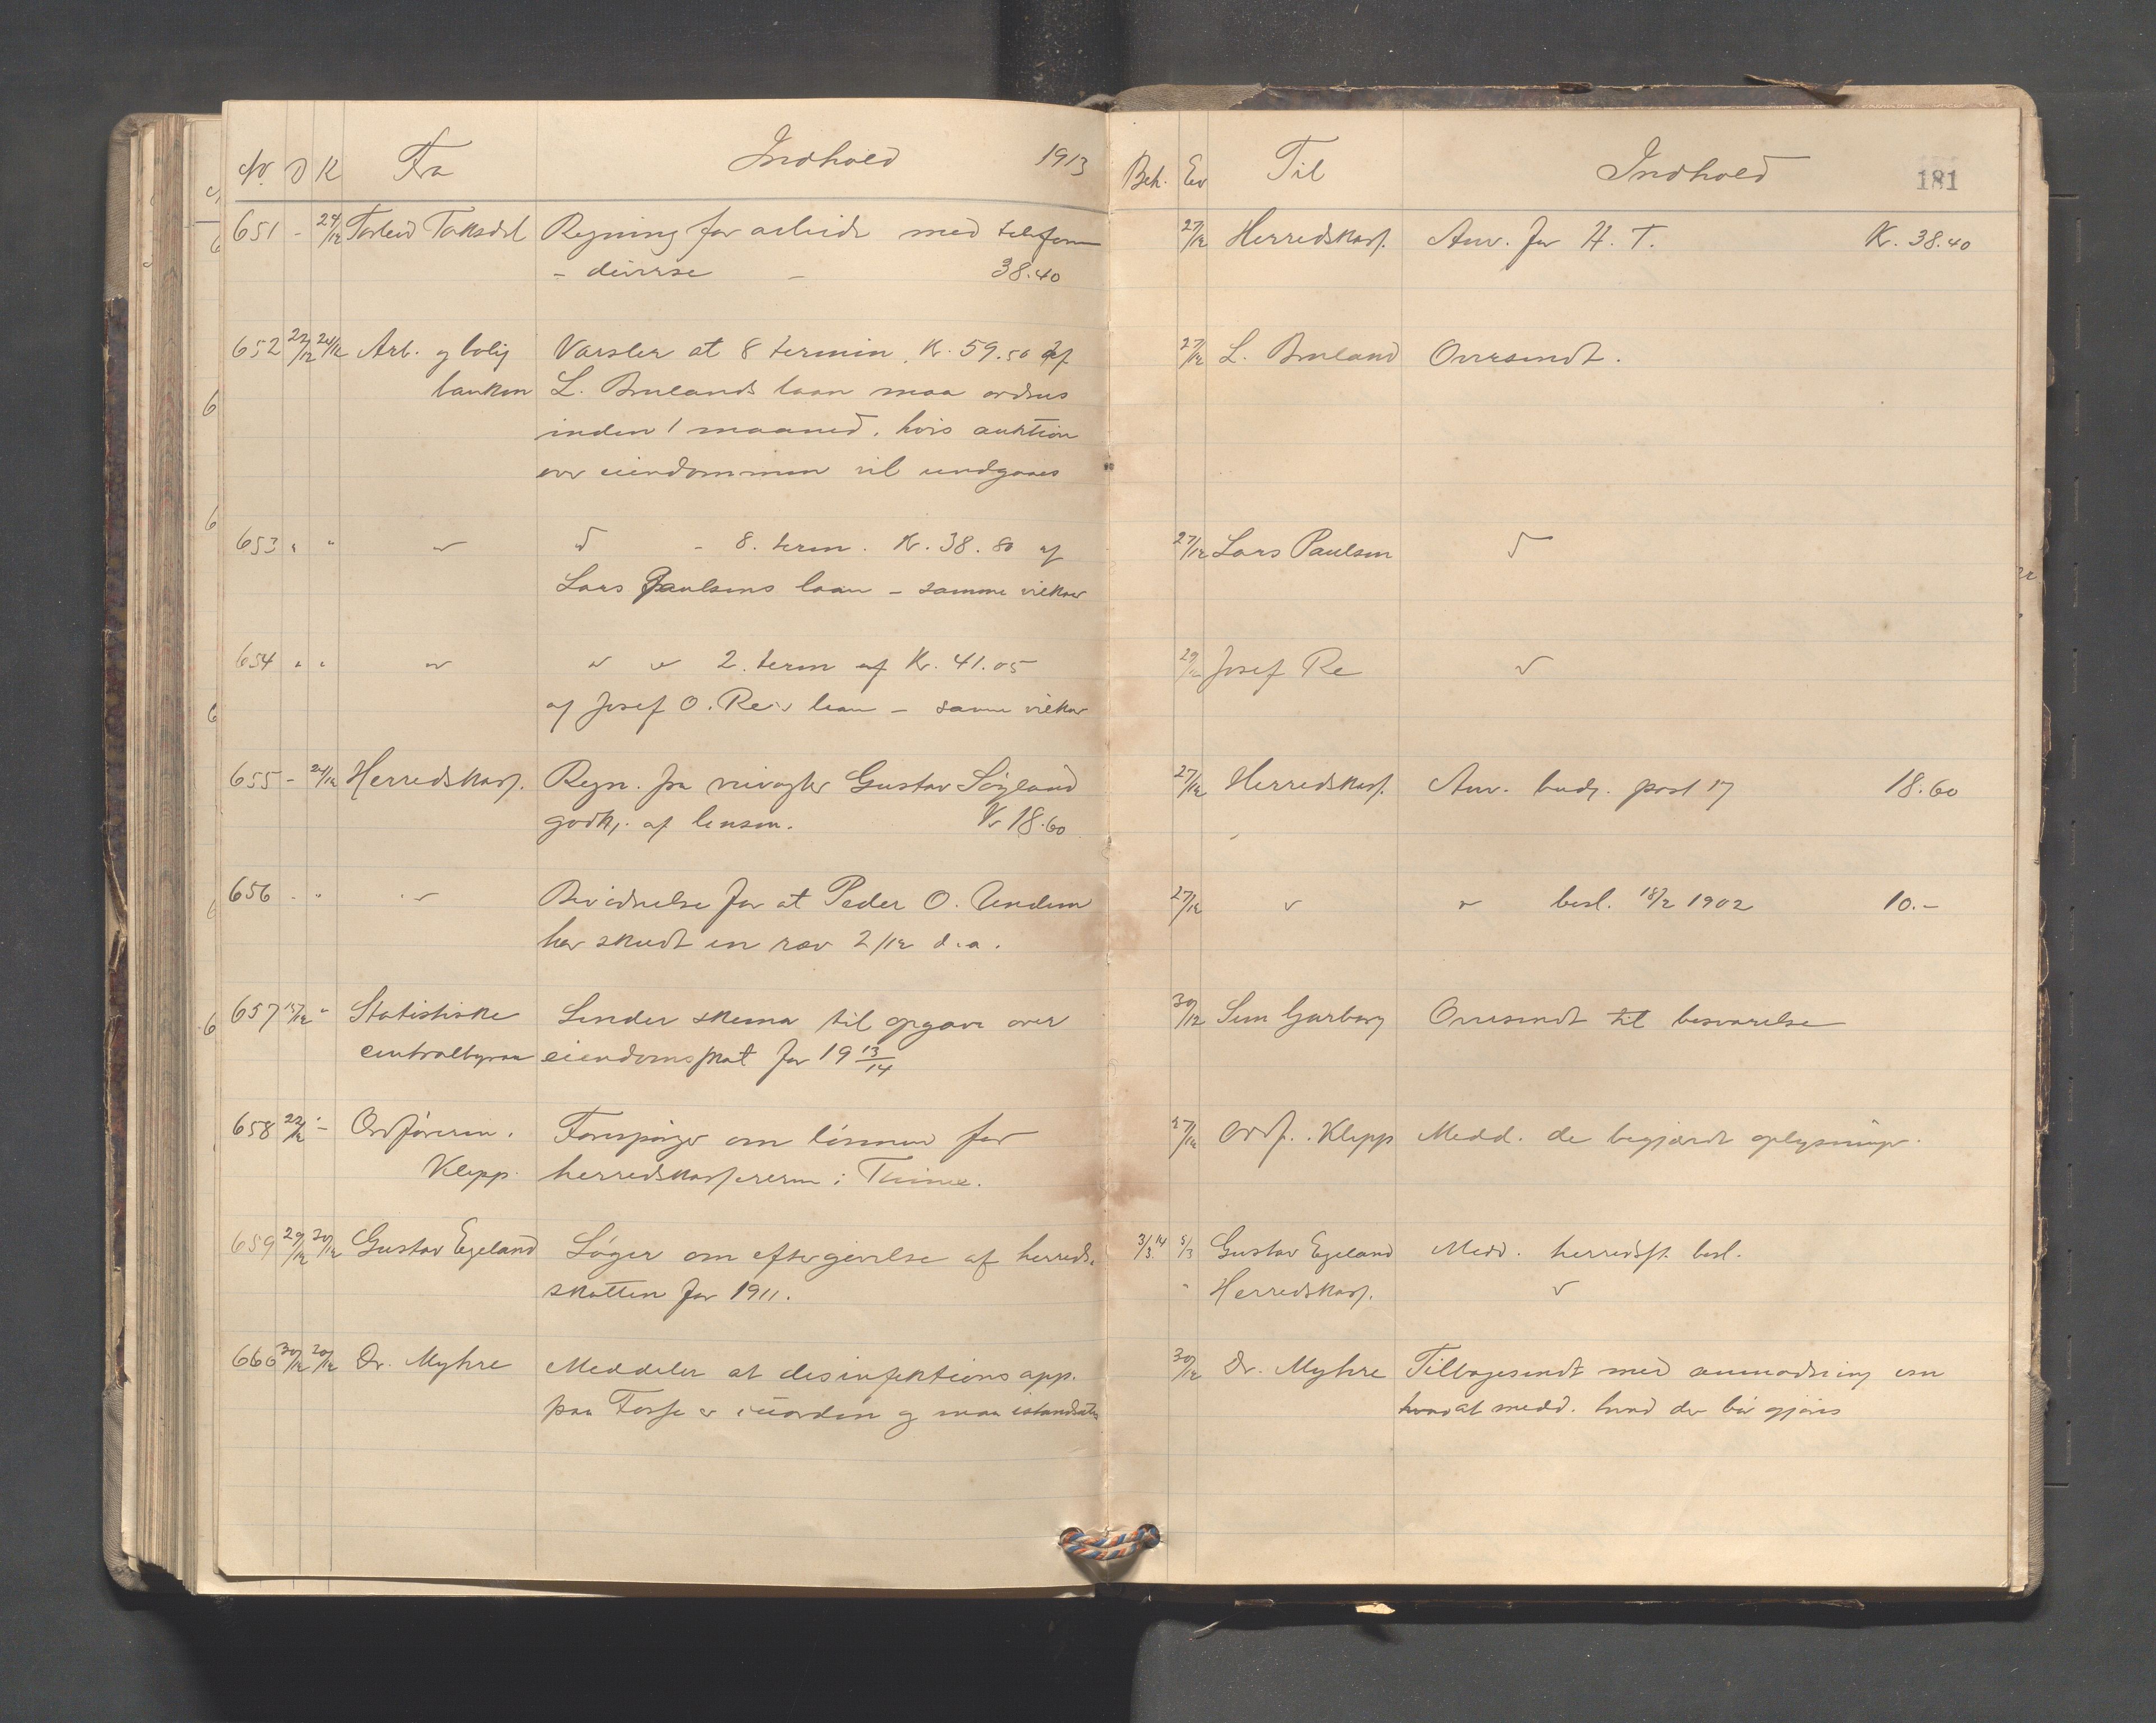 No. D K Fra Indhold 1913
651 - 24/12 Torleiv Taksdal Regning for arbeide med telefonen
- diverse - 38.40
652 22/12 24/12 Arb. og bolig Varsler at 8 termin, Kr. 59.50 af
banken L. Bruelands laan maa ordnes
inden 1 maaned, hvis auktion
over eiendommen vil undgaaes
653 " " " - 8. term. Kr. 38.80 af
Lars Paulsens laan - samme vilkaar
654 " " " " " 2. term af Kr. 41.05
af Josef O. Re's laan - samme vilkaar
655 - 24/12 Herredskass. Regn. fra veivogter Gustav Søyland
godkj. af lensm. Kr 18.60
656 " " " Bevidnelse for at Peder O. Undem
har skudt en ræv 2/12 d.a.
657 15/12 " Statistiske Sender skema til opgave over
centralbyraa eiendomsskat for 19 13/14
658 22/12 - Ordføreren. Forespørger om lønnen for
Klepp. herredskassereren i Thime.
659 29/12 30/12 Gustav Egeland Søger om eftergivelse af herreds-
skatten for 1911.
660 30/12 30/12 Dr. Myhre Meddeler at desinfektionsapp.
paa Fosse er i uorden og maa istandsættes
Beh. Exp Til Indhold 181
27/12 Herredskass. Anv. for H. T. Kr. 38.40
27/12 L. Brueland Oversendt.
27/12 Lars Paulsen "
29/12 Josef Re "
27/12 Herredskass. Anv. budg. post 17 18.60
27/12 " " besl. 18/2 1902 10.-
30/12 Sem Garborg Oversendt til besvarelse
27/12 Ordf. Klepp Medd. de begjærdt oplysninger.
3/3 14 5/3 Gustav Egeland Medd. herredsst. besl.
" Herredskass. "
30/12 Dr. Myhre Tilbagesendt med anmodning om
at medd. hvad der bør gjøres